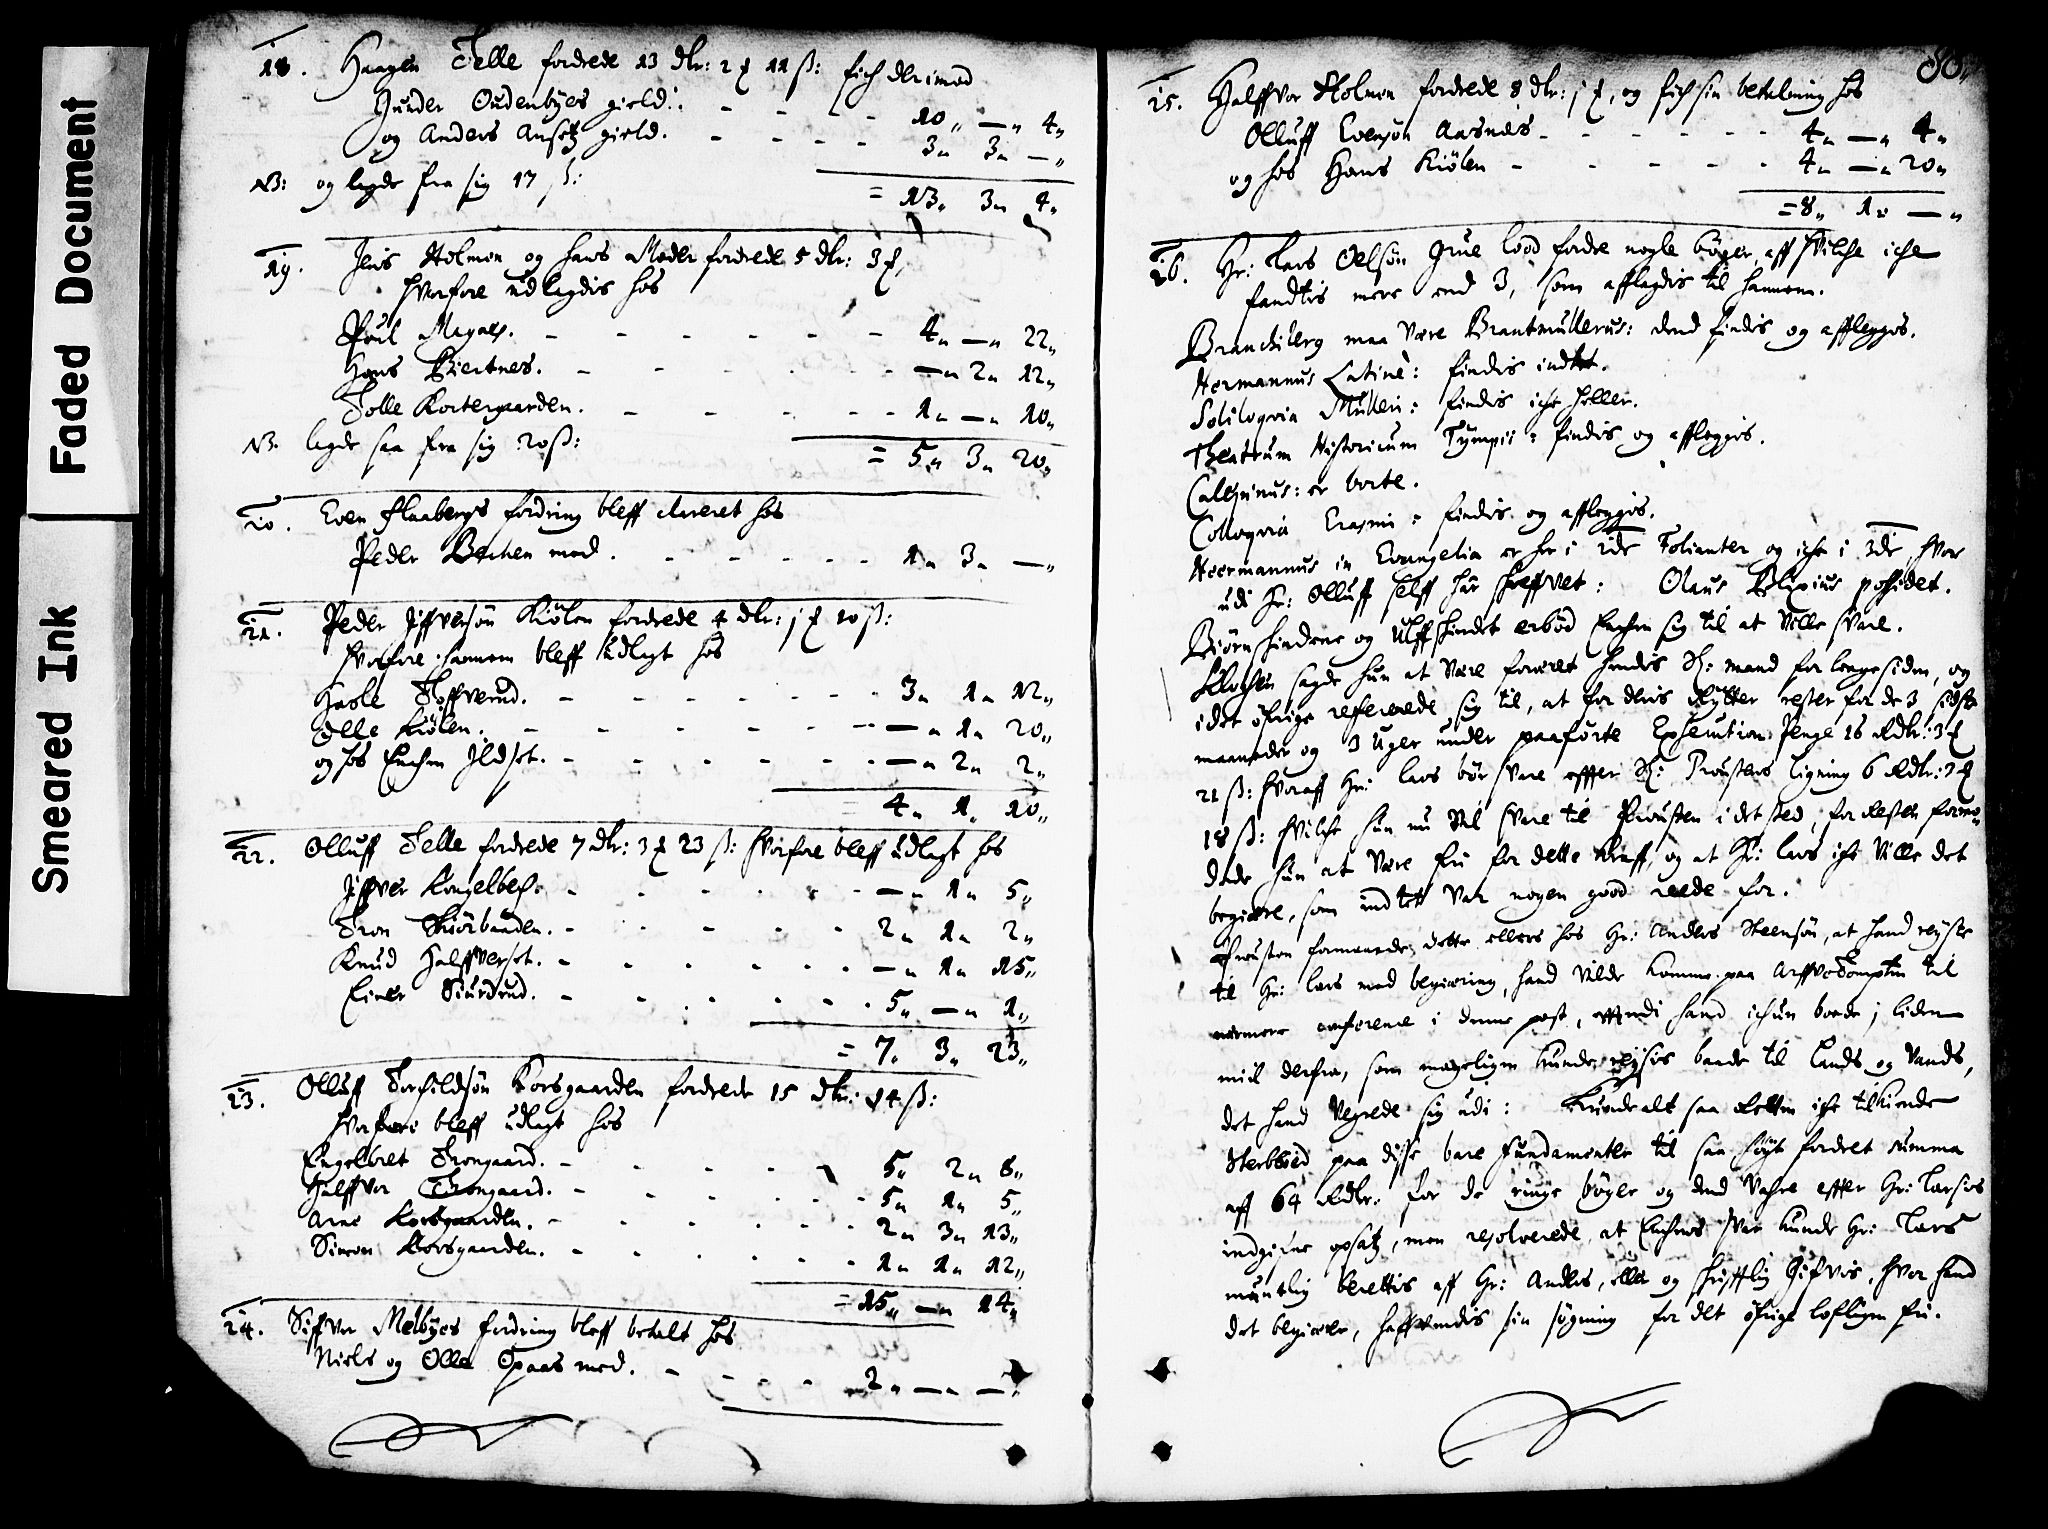 Faded Document
Smeared Ink
18. Haagen Telle fordrede 13 dlr: 2 ℔ 11 ß: fich der imod
Gunder Oudenbyes gield: - - - - 10 „ — „ 4 „
og Anders Ansetz gield. - - - - 3 „ 3 „ — „
NB: og lagde fra sig 17 ß:
= 13 „ 3 „ 4 „
19. Jens Holmen og hans Moder fordrede 5 dlr: 3 ℔,
hvorfore udlagdis hos
Poul - - - - - - 4 „ — „ 22 „
Hans Biertnes. - - - - - — „ 2 „ 12 „
Tolle Kortergaarden. - - - - - 1 „ — „ 10 „
NB. lagde saa fra sig 20 ß:
= 5 „ 3 „ 20 „
20. Even Flaabergs fordring bleff hos
Peder Bechen med. - - - - - 1 „ 3 „ — „
21. Peder Iffversøn Kiølen fordrede 4 dlr: j ℔ 10 ß:
hvorfore hannem bleff udlagt hos
Hoffverud. - - - - - - 3 „ 1 „ 12 „
Kiølen. - - - - - - — „ 1 „ 20 „
og hos Ildset. - - - - - — „ 2 „ 2 „
4 „ 1 „ 10 „
22. Olluff Telle fordrede 7 dlr: 3 ℔ 23 ß: hvorfore bleff udlagt hos
Iffver Kongelbech. - - - - - — „ 1 „ 5 „
Tron - - - - - 2 „ 1 „ 2 „
Knud Halffverset. - - - - - - — „ 1 „ 15 „
Einer - - - - - 5 „ — „ 1 „
= 7 „ 3 „ 23 „
23. Olluff Torchildsøn Korsgaarden fordrede 15 dlr: 14 ß:
hvorfore bleff udlagt hos
Engelbret Trongaard. - - - - - 5 „ 2 „ 8 „
Halffvor Trongaard. - - - - - - 5 „ 1 „ 5 „
Arne Korsgaarden. - - - - - 2 „ 3 „ 13 „
Simon Korsgaarden. - - - - - 1 „ 1 „ 12 „
= 15 „ — „ 14 „
24. Siffver Melbyes fordring bleff betalt hos
Niels og Olle Opaas med. - - - - 2 „ — „ — „
25. Halffvor Holmen fordrede 8 dlr: j ℔, og fich sin betalning hos
Olluff Evensøn Aasnæs - - - - - - 4 „ — „ 4 „
og hos Hans Kiølen - - - - - 4 „ — „ 20 „
= 8 „ 1 „ — „
26. Hr: Lars Oelsøn Grue lood fordre nogle bøger, aff hvilche iche
fandtis mere end 3, som afflagdis til hannem.
maa være Brantmullerus: dend findis og afflegges.
Hermannus Latinè: findis indtet.
Soliloqvia Mulleri: findis iche heller.
Theatrum Historicum Tympii: findis og afflegges.
Calepinus: er borte.
Colloqvia Erasmi: findis og afflegges.
Heermannus in Evangelia er her i 2de Folianter og iche i 3de, hvor
udi Hr: Olluff selff har skreffvet: Olaus possidet.
Biørnehindene og Ulffskindet erbød Enchen sig til at ville svare.
Klochen sagde hun at være foræret hendis Sl: mand for lenge siden, og
idet øfrige refererede sig til, at for deris Rytter rester for de 3 sidste
maaneder og 3 uger under paaførte Execution Penge 16 Rdlr: 3 ℔
21 ß: hvoraff Hr: Lars bør svare effter Sl: Proustens Ligning 6 Rdlr: 3 ℔
18 ß: hvilchet hun nu vil svare til Prousten i det sted, for Resten formo„
dede hun at være fri for dette kraff, og at Hr: Lars iche ville det
begiere, som indtet var nogen good reede for.
Prousten formaaede dette ellers hos Hr: Anders Steensøn, at hand reyste
til Hr: Lars med begiering, hand vilde komme paa Arffvetompten til
nermere conference i denne post, effterdi hand ichun boede j liden
miil derfra, som mageligen kunde reyses baade til Lands og Vands,
det hand vegrede sig udi: Kunde alt saa Retten iche tilkiende
Sterbboed paa disse bare fundamenter til saa høyt fordret summa
aff 64 Rdlr. for de ringe bøger og dend Vahre effter Hr: Larsis
indgifne opsatz, men resolverede, at Enchens svar kunde Hr: Lars
mundtlig berettis aff Hr: Anders, eller og skrifftlig gifvis, hvor hand
det begierer, haffvendis sin søgning for det øfrige lofligen fri.